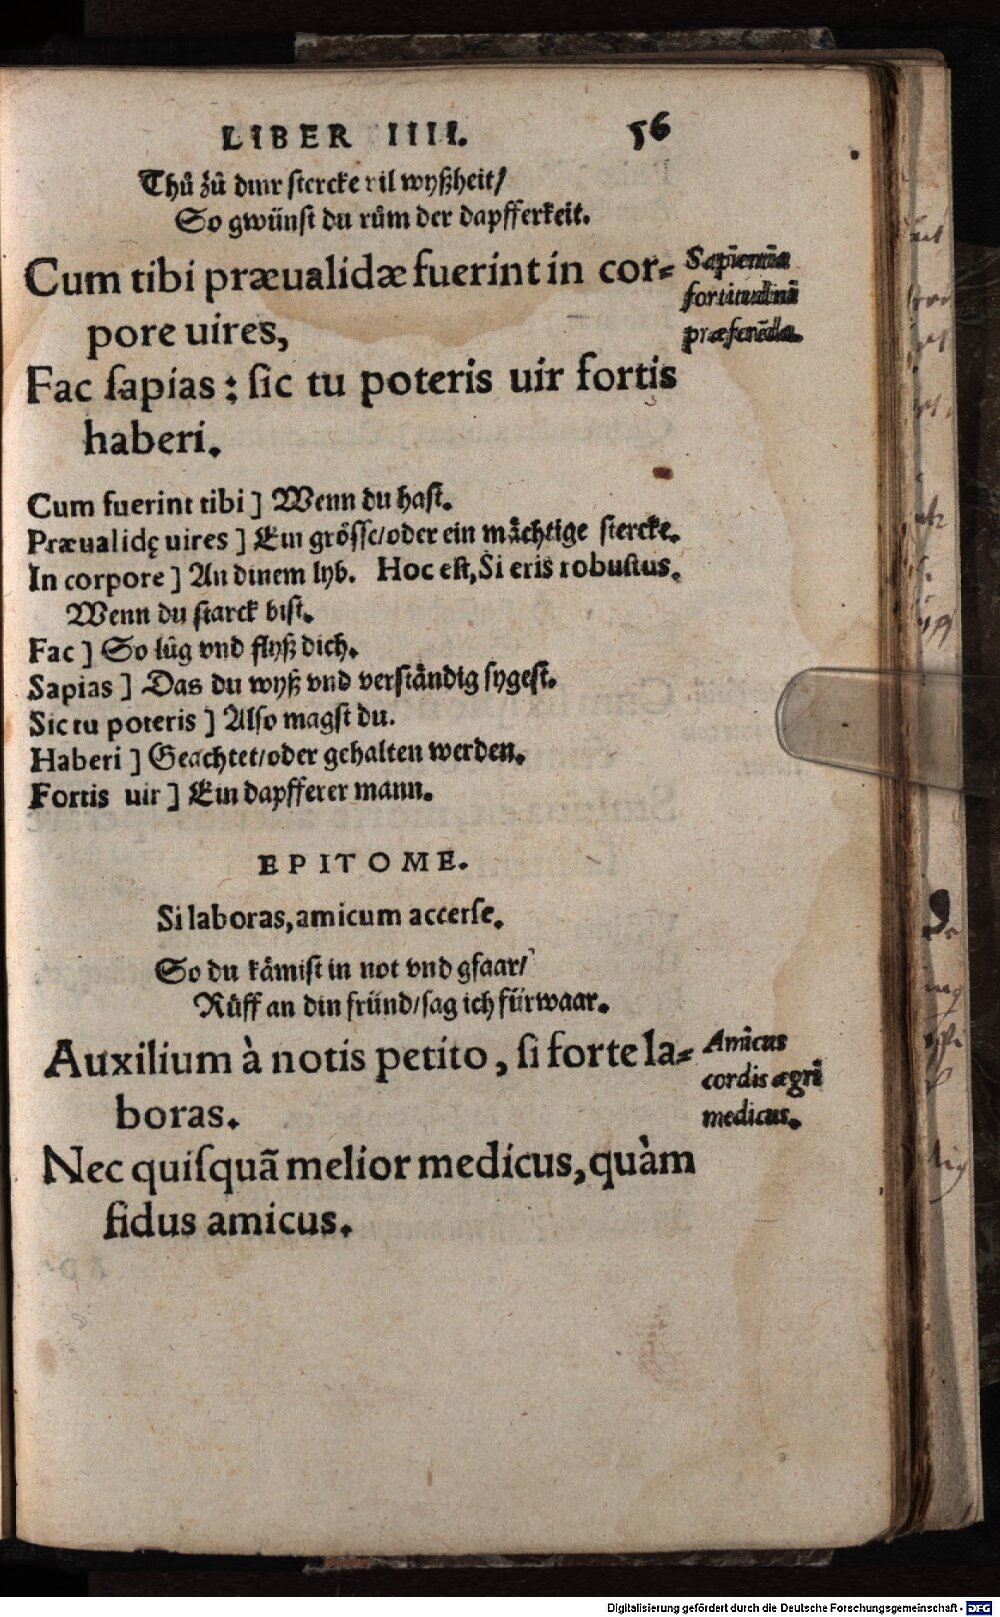 LIBER IIII. 56
Thů zů diner stercke vil wyßheit/
So gwünst du rům der dapfferkeit.
Cum tibi præualidæ fuerint in cor-
pore uires,
Fac sapias: sic tu poteris uir fortis
haberi.
Sapiēntia
fortitudini
præferēda.
Cum fuerint tibi] Wenn du hast.
Præualidę uires] Ein grösse/oder ein mächtige stercke.
In corpore] An dinem lyb. Hoc est, Si eris robustus.
Wenn du starck bist.
Fac] So lůg vnd flyß dich.
Sapias] Das du wyß vnd verständig sygest.
Sic tu poteris] Also magst du.
Haberi] Geachtet/oder gehalten werden.
Fortis uir] Ein dapfferer mann.
EPITOME.
Si laboras, amicum accerse.
So du kämist in not vnd gfaar/
Růff an din fründ/sag ich fürwaar.
Auxilium à notis petito, si forte la-
boras.
Nec quisquā melior medicus, quàm
fidus amicus.
Amicus
cordis ægri
medicus.
Digitalisierung gefördert durch die Deutsche Forschungsgemeinschaft - DFG